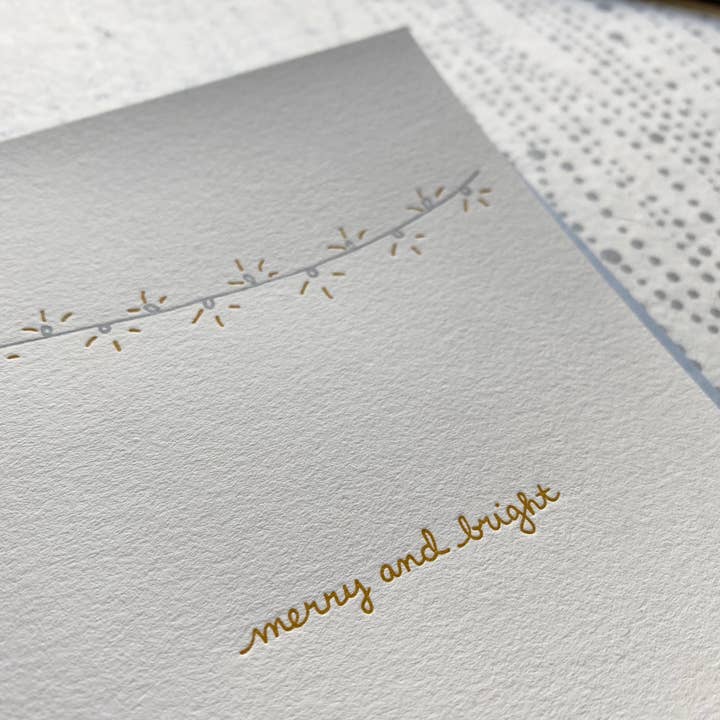 merry and bright